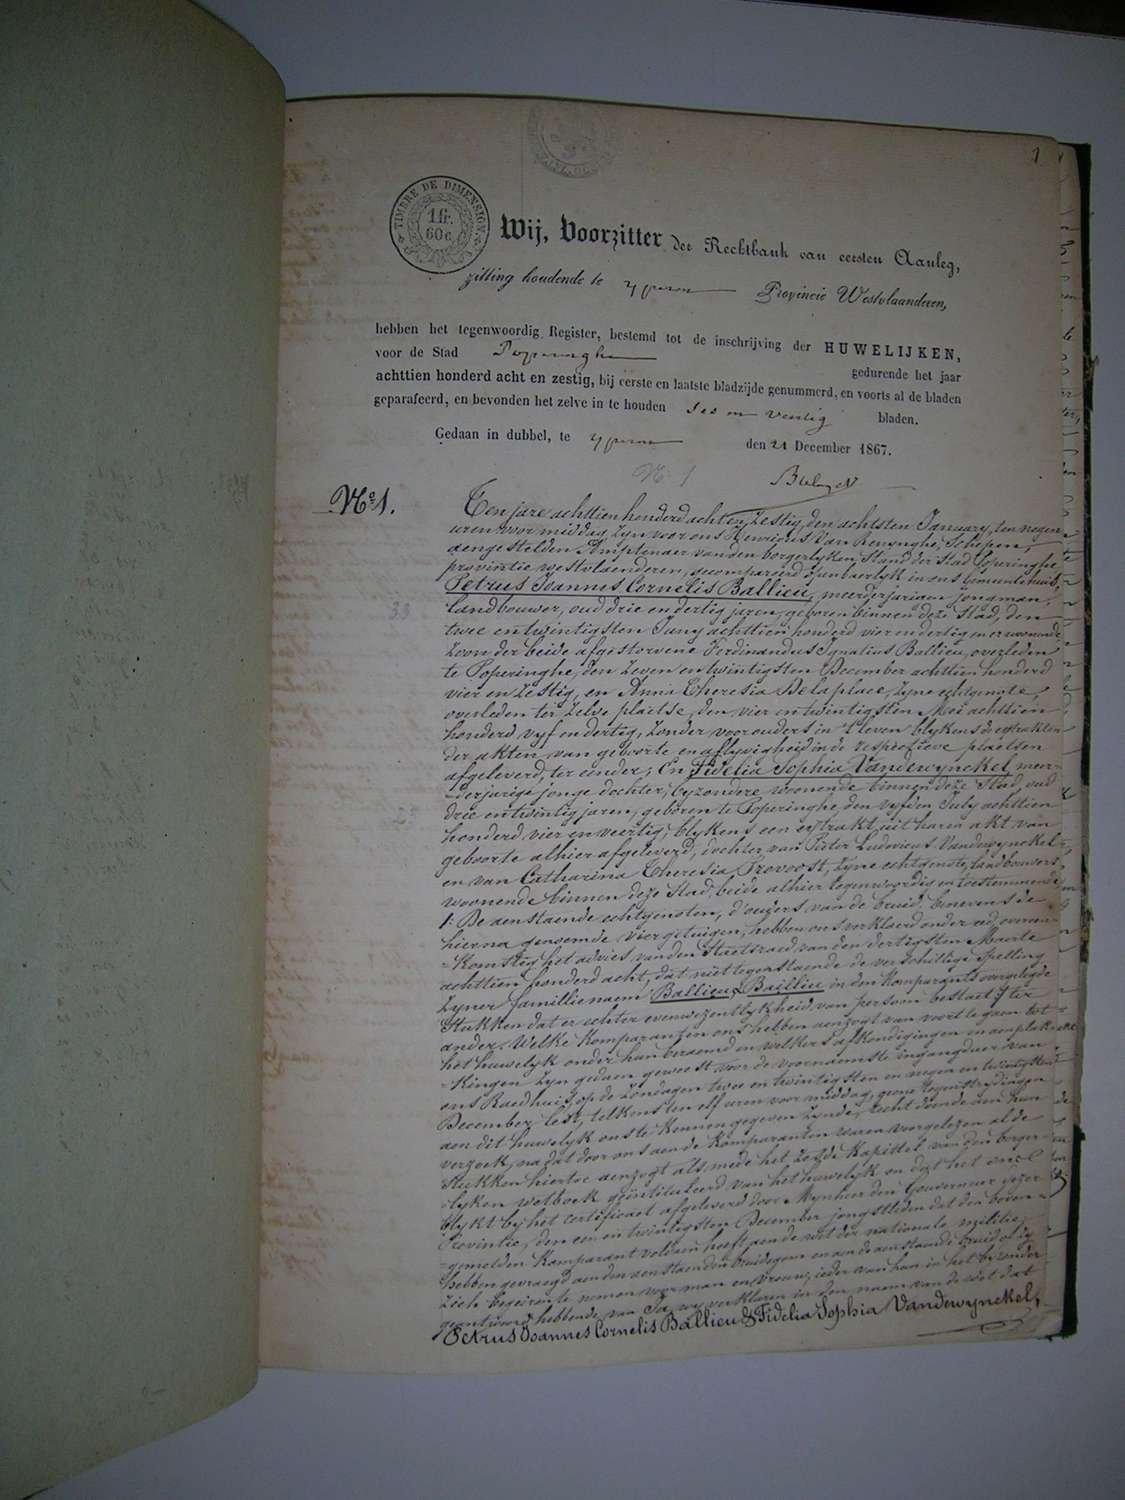 1
TIMBRE DE DIMENSION
1 fr.
60 c.
Wij, Voorzitter der Rechtbank van eersten Aanleg,
zitting houdende te Yperen Provincie Westvlaanderen,
hebben het tegenwoordig Register, bestemd tot de inschrijving der HUWELIJKEN,
voor de Stad Poperinghe gedurende het jaar
achttien honderd acht en zestig, bij eerste en laatste bladzijde genummerd, en voorts al de bladen
geparafeerd, en bevonden het zelve in te houden ses en veertig bladen.
Gedaan in dubbel, te Yperen den 21 December 1867.
N. 1
No. 1.
Ten jare achttien honderd acht en zestig, den achtsten January, ten negen
uren voor middag, zyn voor ons Henricus Van Renynghe, Schepen,
aengestelden Amptenaer van den borgerlyken Stand der Stad Poperinghe,
provintie westvlaenderen, gecompareerd openbaerlyk in ons Gemeentehuis,
Petrus Joannes Cornelis Ballieu, meerderjarigen jongman,
33
landbouwer, oud drie en dertig jaren, geboren binnen deze Stad, den
twee en twintigsten Juny achttien honderd vier en dertig en er woonende
zoon der beide afgestorvene Ferdinandus Ignatius Ballieu, overleden
te Poperinghe, den zeven en twintigsten December achttien honderd
vier en zestig, en Anna Theresia Delaplace, zyne echtgenote,
overleden ter zelve plaetse, den vier en twintigsten Mei achttien
honderd vyf en dertig, zonder voorouders in 't leven blykens de extrakten
der akten van geboorte en aflyvigheid in de respectieve plaetsen
afgeleverd, ter eender; En Fidelia Sophia Vandewynckel, meer-
derjarige jonge dochter, byzondere woonende binnen deze Stad, oud
23
drie en twintig jaren, geboren te Poperinghe den vyfden July achttien
honderd vier en veertig, blykens een extrakt uit haren akt van
geboorte alhier afgeleverd, dochter van Pieter Ludovicus Vandewynckel
en van Catharina Theresia Provoost, zyne echtgenote, landbouwers
woonende binnen deze Stad, beide alhier tegenwoordig en toestemmende
1: De aenstaende echtgenoten, d'ouders van de bruid, benevens de
hierna genoemde vier getuigen, hebben ons verklaerd onder eed, overeen-
komstig het advies van den Staetsraed van den dertigsten Maerte
achttien honderd acht, dat niet tegenstaende de verschillige spelling
zyner familienaem Ballieu & Baillieu in den komparants overgelegde
stukken dat er echter eenwezentlykheid van persoon bestaet; ter
ander. Welke komparanten ons hebben aenzogt van voort te gaen tot
het huwelyk onder hun beraemd en welkers afkondigingen en aenplak-
kingen zyn gedaen geweest voor de voornaemste ingangdeur van
ons Raedhuis, op de zondagen twee en twintigsten en negen en twintigsten
December lest, telkens ten elf uren voor middag, geene tegenstrydingen
aen dit huwelyk ons te kennen gegeven zynde, recht doende aen hun
verzoek, nadat door ons aen de komparanten waren voorgelezen al de
stukken hiertoe aenzogt als mede het zesde kapittel van den borger-
lyken wetboek geïntituleerd van het huwelyk en dat het
blykt by het certificaet afgeleverd door Mynheer den Gouverneur dezer
Provintie, den een en twintigsten December jongstleden dat den boven-
gemelden komparant voldaen heeft aen de wet der nationale militie,
hebben gevraegd aen den aenstaenden bruidegom en aen de aenstaende bruid of zy
zich begeiren te nemen voor man en vrouw; ieder van hun in het byzonder
geantwoord hebbende van Ja, wy verklaren in den naem van de wet dat
Petrus Joannes Cornelis Ballieu & Fidelia Sophia Vandewynckel,